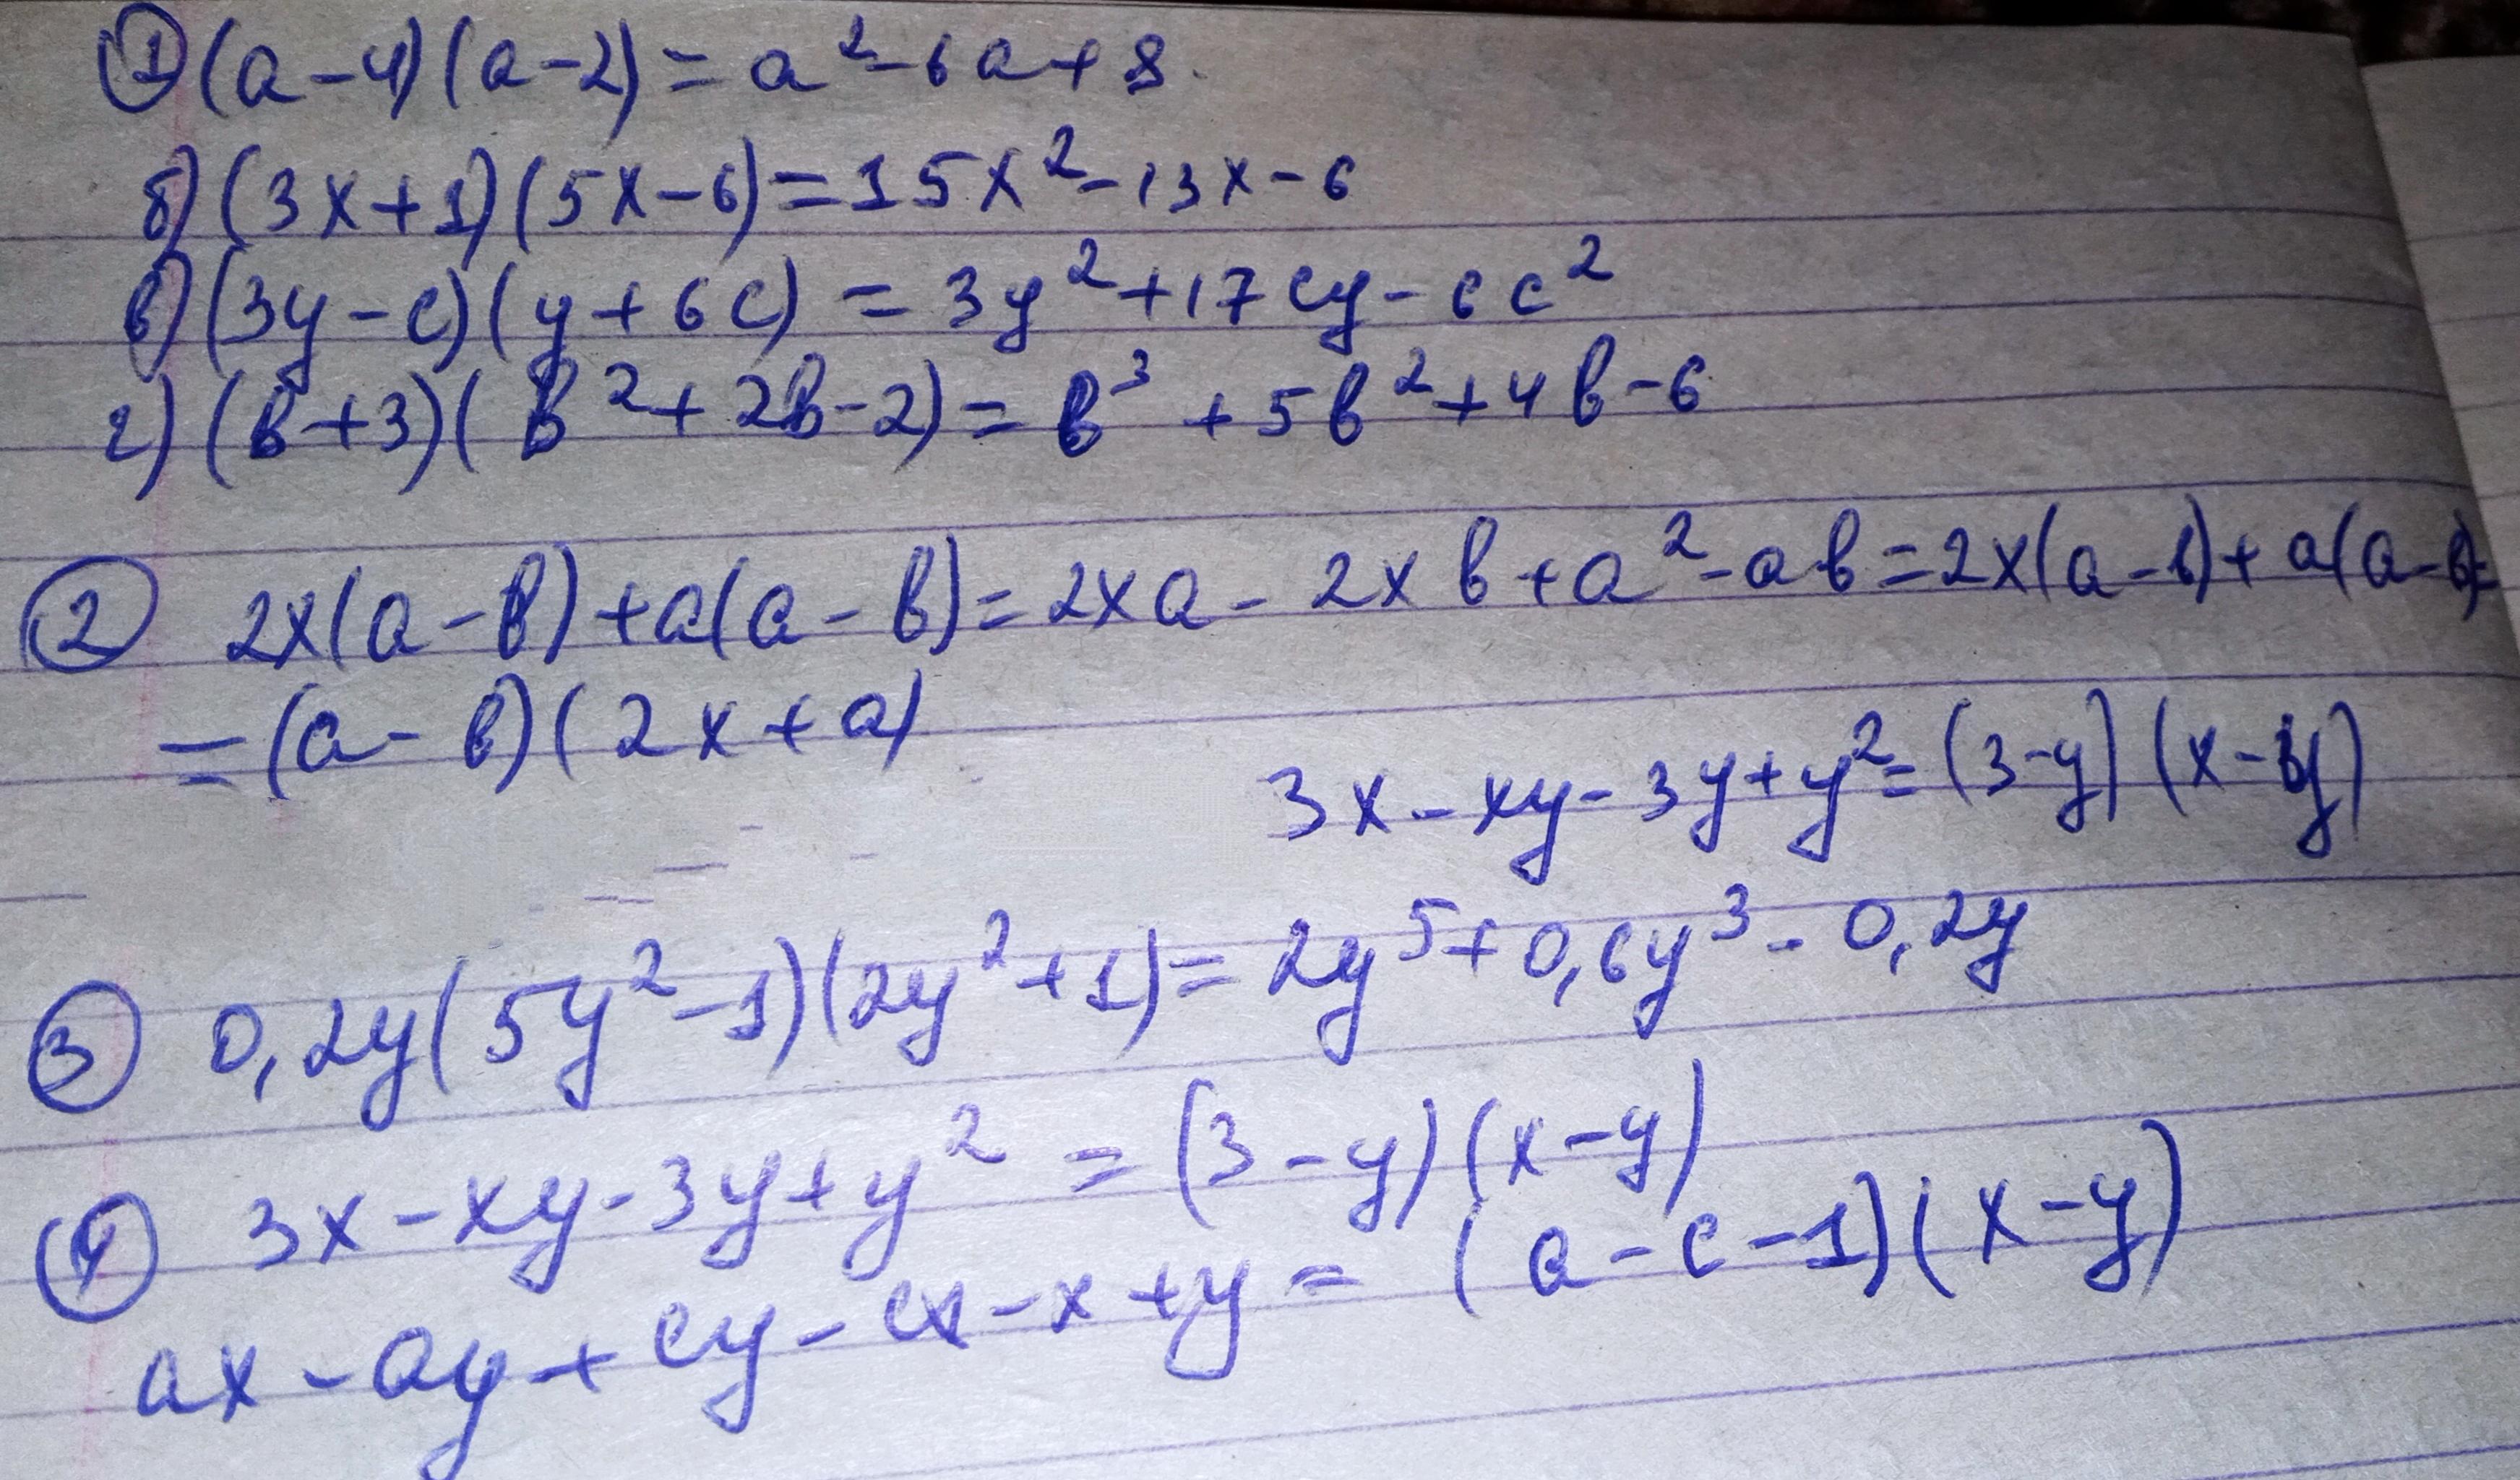 ① (a-4)(a-2)=a²-6a+8.
б) (3x+1)(5x-6)=15x²-13x-6
в) (3y-c)(y+6c)=3y²+17cy-6c²
г) (b+3)(b²+2b-2)=b³+5b²+4b-6
② 2x(a-b)+a(a-b)=2xa-2xb+a²-ab=2x(a-b)+a(a-b)=
=(a-b)(2x+a)
3x-xy-3y+y²=(3-y)(x-y)
③ 0,2y(5y²-1)(2y²+1)=2y⁵+0,6y³-0,2y
④ 3x-xy-3y+y²=(3-y)(x-y)
ax-ay+cy-cx-x+y=(a-c-1)(x-y)